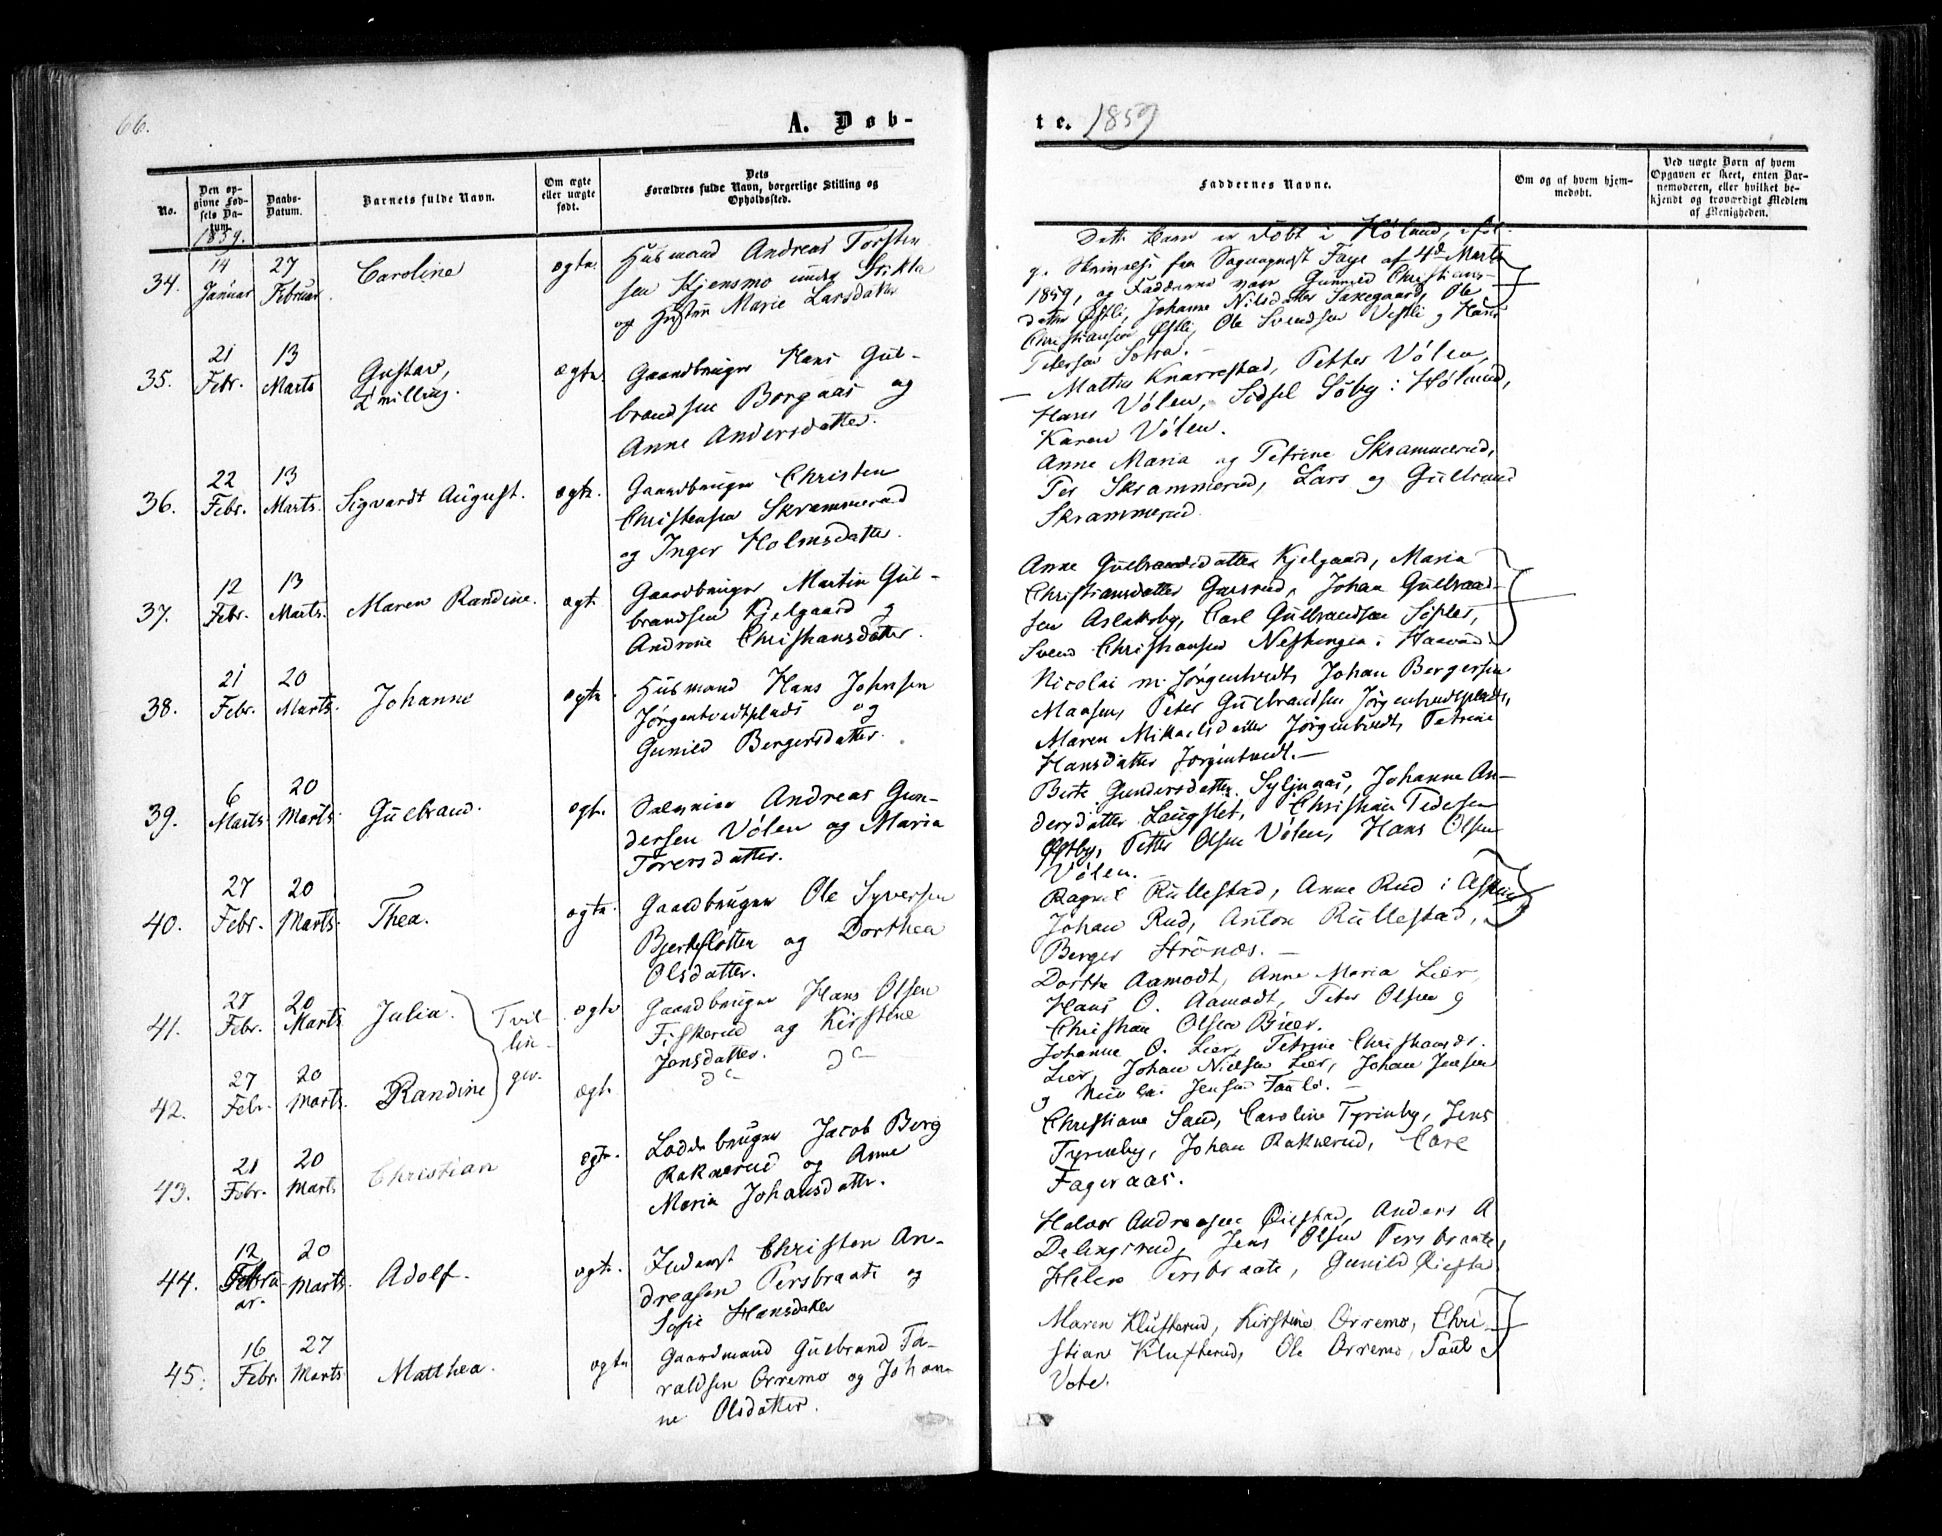 66.
A. Døb-
No.
Den op-
givne Fød-
sels Da-
tum.
1859.
Daabs-
Datum.
Barnets fulde Navn.
Om ægte
eller uægte
født.
Dets
Forældres fulde Navn, borgerlige Stilling og
Opholdssted.
34.
14
Januar
27
Februar
Caroline
ægte
Husmand Andreas Torsten
sen Kjensmo
og Marie Larsdatter
35.
21
Febr.
13
Marts
Gustav,
Tvilling.
ægte
Gaardbruger Hans Gul-
brandsen Borgaas og
Anne Andersdatter.
36.
22
Febr.
13
Marts.
Sigvardt August.
ægte.
Gaardbruger Christen
Christensen Skrammerud
og Inger Holmsdatter.
37.
12
Febr.
13
Marts.
Maren Randine.
ægte
Gaardbruger Martin Gul-
brandsen Kjelgaard og
Andrine Christiansdatter.
38.
21
Febr.
20
Marts.
Johanne
ægte
Husmand Hans Johnsen
Jørgentvedtplads og
Gunild Bergersdatter.
39.
6
Marts
20
Marts
Gulbrand.
ægte.
Andreas Gun-
dersen Vølen og Maria
Torersdatter.
40.
27
Febr.
20
Marts.
Thea.
ægte.
Gaardbruger Ole Syversen
Bjerkeslotten og Dorthea
Olsdatter.
41.
27
Febr.
20
Marts
Julia.
Tvil-
lin-
ger.
ægte
Gaardbruger Hans Olsen
Fiskerud og Kirstine
Jensdatter.
42.
27
Febr.
20
Marts.
Randine
ægte.
do do
43.
21
Febr.
20
Marts
Christian
ægte.
Jacob Berg
Raknerud og Anne
Maria Johansdatter.
44.
12
Febru-
ar.
20
Marts.
Adolf.
ægte.
Christen An-
dreasen Persbraate og
Sofie Hansdatter
45.
16
Febr.
27
Marts
Matthea.
ægte
Gaardmand Gulbrand Ha-
raldsen Orremo og Johan-
ne Olsdatter.
te. 1859
Faddernes Navne.
Om og af hvem hjem-
medøbt.
Ved uægte Børn af hvem
Opgaven er skeet, enten Bar-
nemoderen, eller hvilket be-
kjendt og troværdigt Medlem
af Menigheden.
Dette Barn er døbt i Høland, iføl-
ge Skrivelse fra Sognepræst Faye af 4de Marts
1859, og Fadderne vare Gunnild Christians-
datter Østli, Johanne Nilsdatter Sakegaard, Ole
Christiansen Østli, Ole Svendsen Vestli og Hans
Petersen Sotra.
Mathis Knarrestad, Petter Vølen,
Hans Vølen, Sidsel Søby i Høland,
Karen Vølen.
Anne Maria og Petrine Skrammerud,
Per Skrammerud, Lars og Gulbrand
Skrammerud.
Anne Gulbrandsdatter Kjelgaard, Maria
Christiansdatter Garsrud, Johan Gulbrand-
sen Aslaksby, Carl Gulbrandsen Søpler,
Svend Christiansen
Nicolai M. Jørgentvedt, Johan Bergersen
Maasen, Peter Gulbrandsen Jørgentvedtplads,
Maren Mikaelsdatter Jørgentvedt, Petrine
Hansdatter Jørgentvedt.
Berte Gundersdatter Syljuaas, Johanne An-
dersdatter Laugslet, Christian Pedersen
Østby, Petter Olsen Vølen, Hans Olsen
Vølen.
Ragnil Rullestad, Anne Rud i Askim
Johan Rud, Anton Rullestad,
Berger Strønæs.
Dorthe Aamodt, Anne Maria Lier,
Hans O. Aamodt, Peter Olsen og
Christian Olsen Buer.
Johanne O. Lier, Petrine Christiansdr.
Lier, Johan Nielsen Lier, Johan Jensen
og Nicolai Jensen
Christiane Sand, Caroline Tyrinby, Jens
Tyrinby, Johan Raknerud, Carl
Fageraas.
Halvor Andreasen Øiestad, Anders A
Delingsrud, Jens Olsen Persbraate,
Helene Persbraate, Gunild Øiesta
Maren Klufterud, Kirstine Orremo, Chri-
stian Klufterud, Ole Orremo, Paul
Vote.